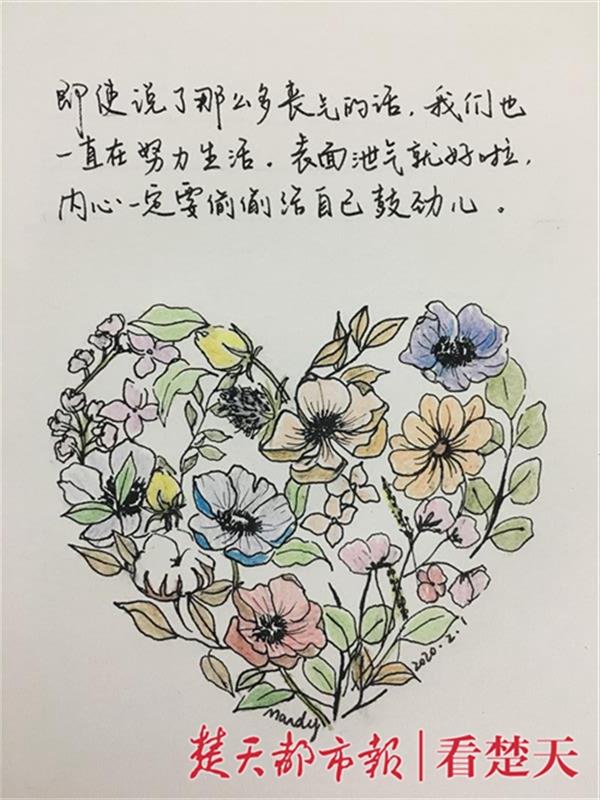 即使说了那么多丧气的话，我们也
一直在努力生活。表面泄气就好啦，
内心一定要偷偷给自己鼓劲儿。
2020.2.1
Mandy
楚天都市報|看楚天